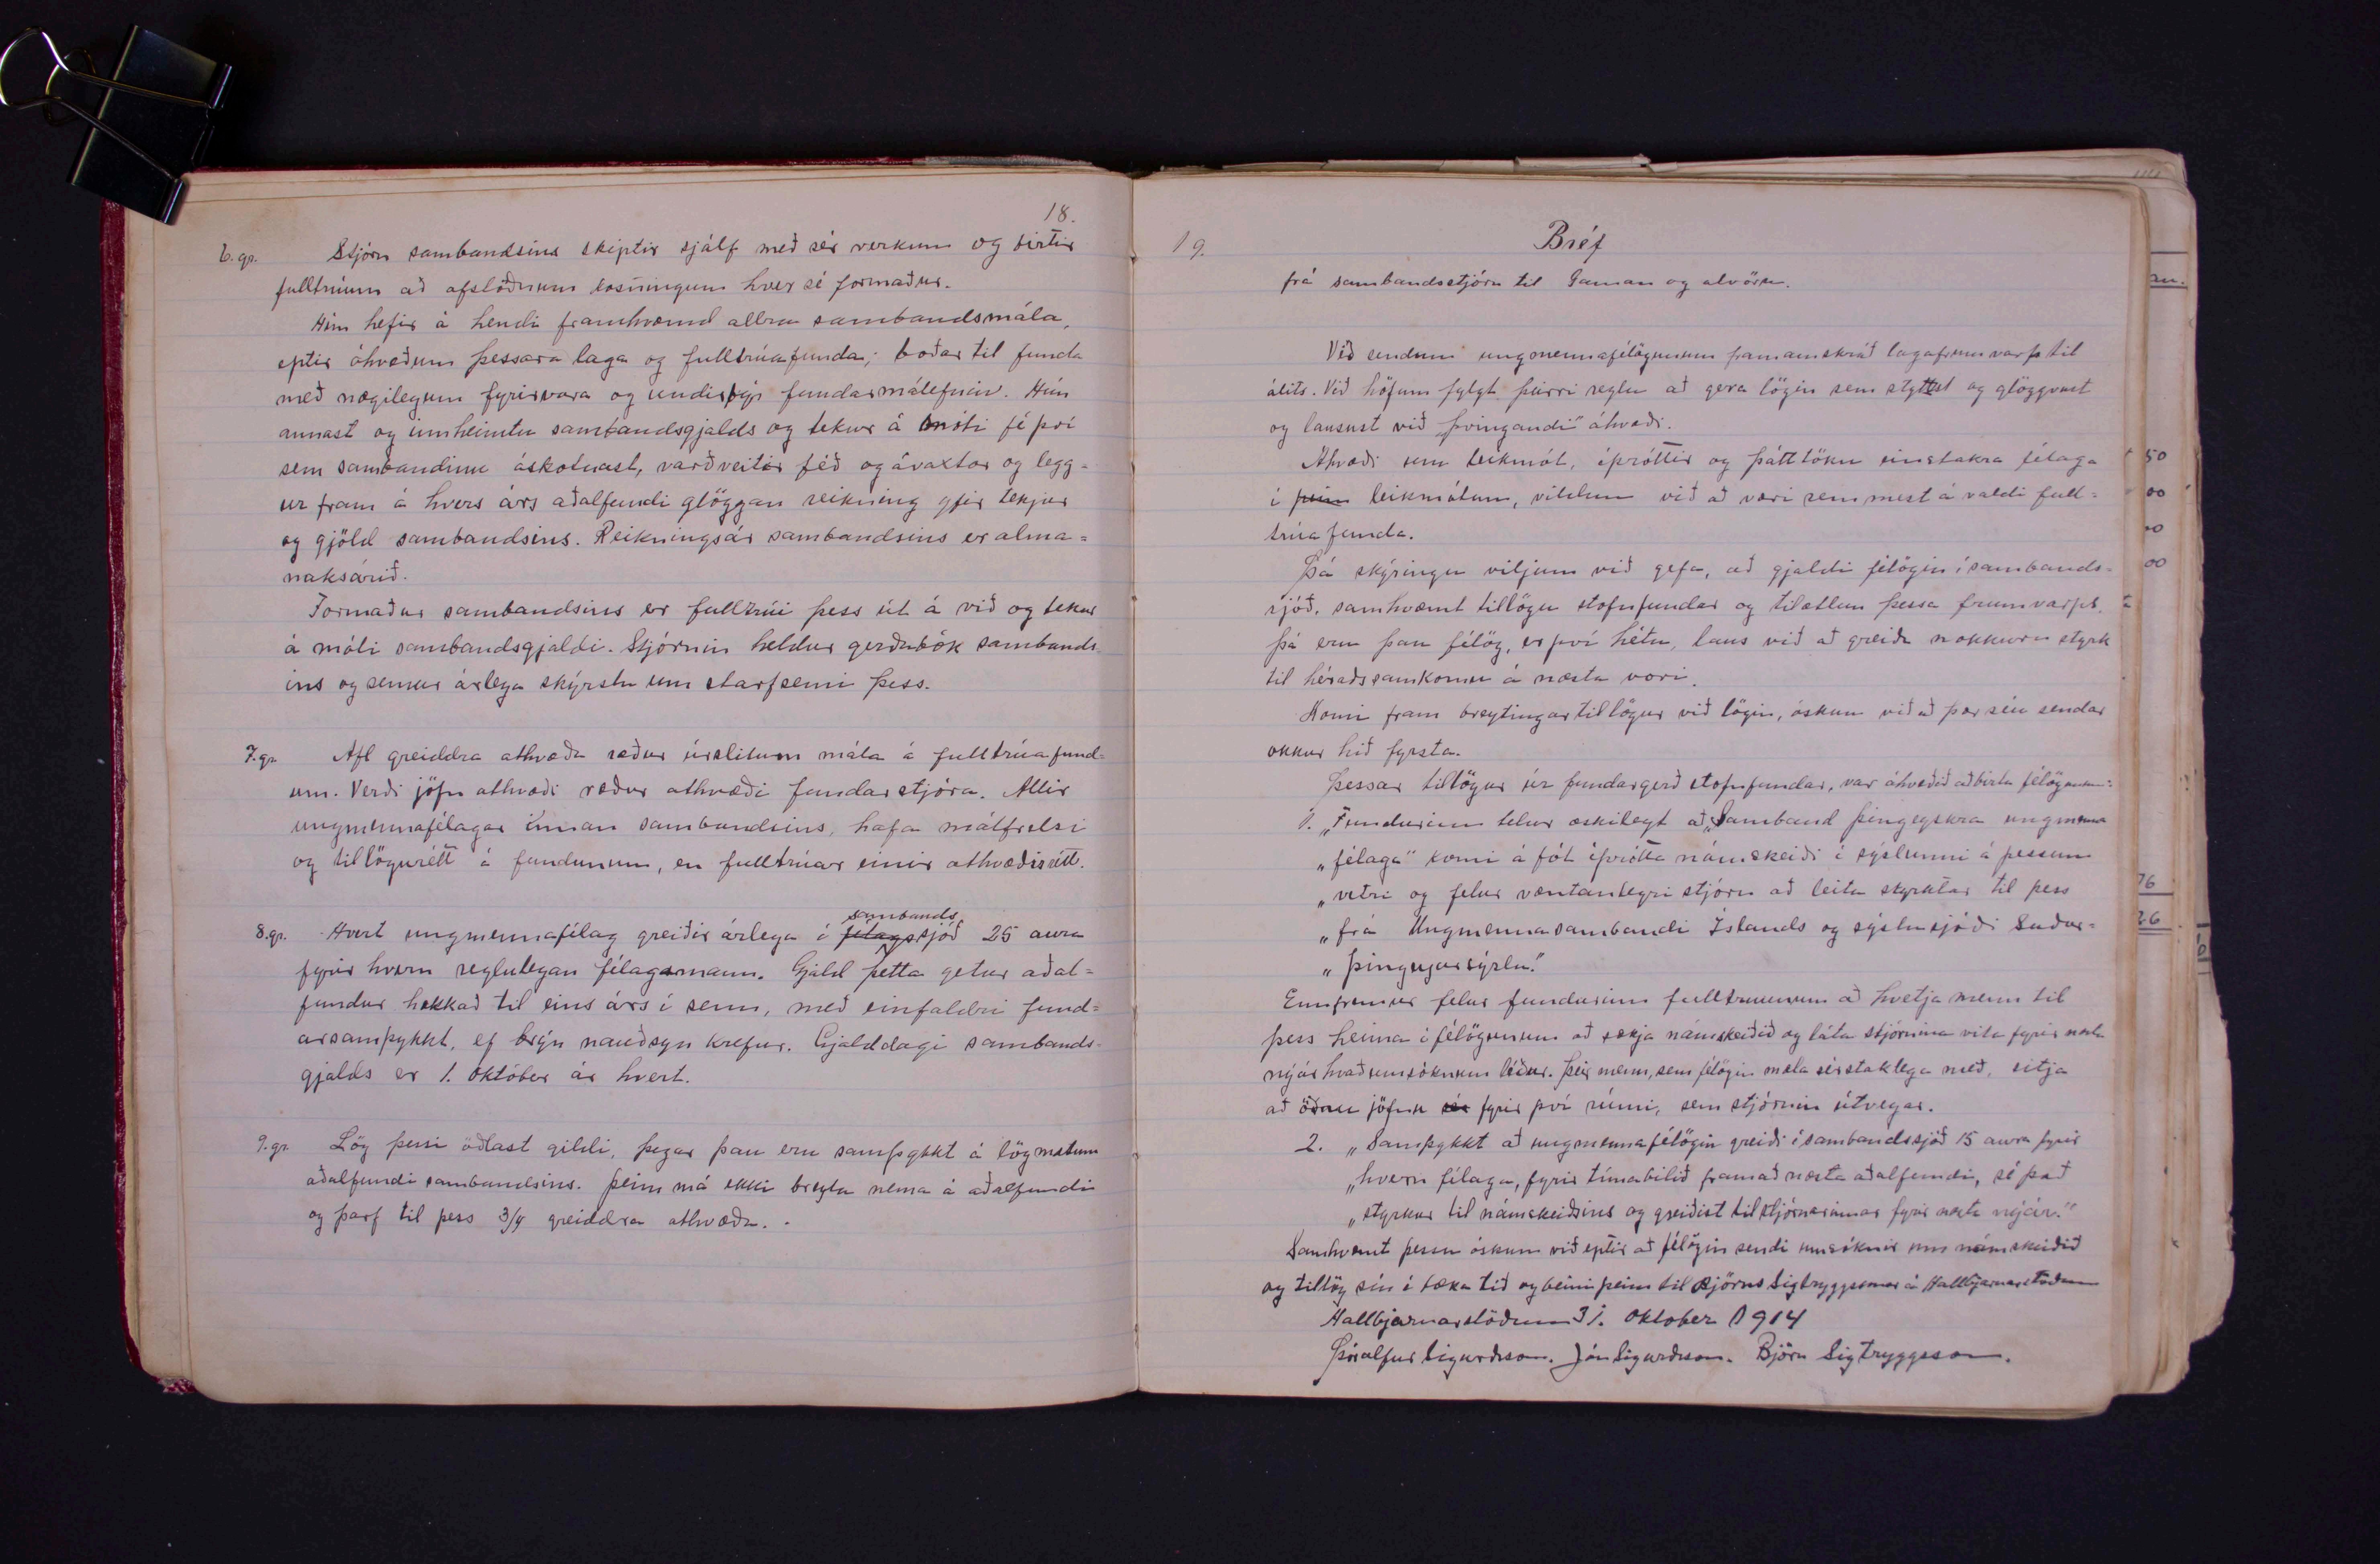 18.
6. gr. Stjórn sambandsins skiptir sjálf með sér verkum og birtir
fulltrúum að afstöðnum kosningum hver sé formaður.
Hún hefir á hendi framkvæmd allra sambandsmála,
eptir ákvæðum þessara laga og fulltrúafunda; boðar til funda
með nægilegum fyrirvara og undirbýr fundarmálefnin. Hún
annast og innheimtu sambandsgjalds og tekur á móti fé því
sem sambandinu áskotnast, varðveitir féð og ávaxtar og legg=
ur fram á hvers árs aðalfundi glöggan reikning yfir tekjur
og gjöld sambandsins. Reikningsár sambandsins er alma=
naksárið.
Formaður sambandsins er fulltrúi þess út á við og tekur
á móti sambandsgjaldi. Stjórnin heldur gerðabók sambands-
ins og semur árlega skýrslu um starfsemi þess.
7. gr. Afl greiddra atkvæða ræður úrslitum mála á fulltrúafund=
um. Verði jöfn atkvæði ræður atkvæði fundarstjóra. Allir
ungmennafélagar innan sambandsins, hafa málfrelsi
og tillögurétt á fundunum, en fulltrúar einir atkvæðisrétt.
sambands
8. gr. Hvert ungmennafélag greiðir árlega í félagssjóð 25 aura
fyrir hvern reglulegan félagsmann. Gjald þetta getur aðal=
fundur hækkað til eins árs í senn, með einfaldri fund=
arsamþykkt, ef brýn nauðsyn krefur. Gjalddagi sambands-
gjalds er 1. október ár hvert.
9. gr. Lög þessi öðlast gildi, þegar þau eru samþykkt á lögmætum
aðalfundi sambandsins. Þeim má ekki breyta nema á aðalfundi
og þarf til þess 3/4 greiddra atkvæða.
19.
Bréf
frá sambandsstjórn til Gaman og alvöru.
Við sendum ungmennafélögunum framanskráð lagafrumvarp til
álits. Við höfum fylgt þeirri reglu að gera lögin sem styttst og glöggvust
og lausust við „þvingandi" ákvæði.
Ákvæði um leikmót, íþróttir og þátttöku einstakra félaga
í þeim leikmótum, vildum við að væri sem mest á valdi full=
trúafunda.
Þá skýringu viljum við gefa, að gjaldi félögin í sambands=
sjóð, samkvæmt tillögu stofnfundar og tilætlun þessa frumvarps,
þá eru þau félög, er því hétu, laus við að greiða nokkurn styrk
til héraðssamkomu á næsta vori.
Komi fram breytingartillögur við lögin, óskum við að þær séu sendar
okkur hið fyrsta.
Þessar tillögur úr fundargerð stofnfundar, var ákveðið að birta félögunum:
1. „Fundurinn telur æskilegt að „Samband þingeyskra ungmenna
„félaga" komi á fót íþrótta námskeiði í sýslunni á þessum
„vetri og felur væntanlegri stjórn að leita styrktar til þess
„frá Ungmennasambandi Íslands og sýslusjóði Suður=
„Þingeyjarsýslu."
Ennfremur felur fundurinn fulltrúunum að hvetja menn til
þess heima í félögunum að sækja námskeiðið og láta stjórnina vita fyrir næsta
nýár hvað umsóknum líður. Þeir menn, sem félögin mæla sérstaklega með, sitja
að öðru jöfnu fyrir því rúmi, sem stjórnin útvegar.
2. „Samþykkt að ungmennafélögin greiði í sambandssjóð 15 aura fyrir
„hvern félaga, fyrir tímabilið fram að næsta aðalfundi, sé það
„styrkur til námskeiðsins og greiðist til stjórnarinnar fyrir næsta nýár."
Samkvæmt þessu óskum við eptir að félögin sendi umsóknir um námskeiðið
og tillög sín í tæka tíð og beini þeim til Björns Sigtryggssonar á Hallbjarnarstöðum
Hallbjarnarstöðum 31. október 1914
Þórólfur Sigurðsson. Jón Sigurðsson. Björn Sigtryggsson.
50
00
00
76
26